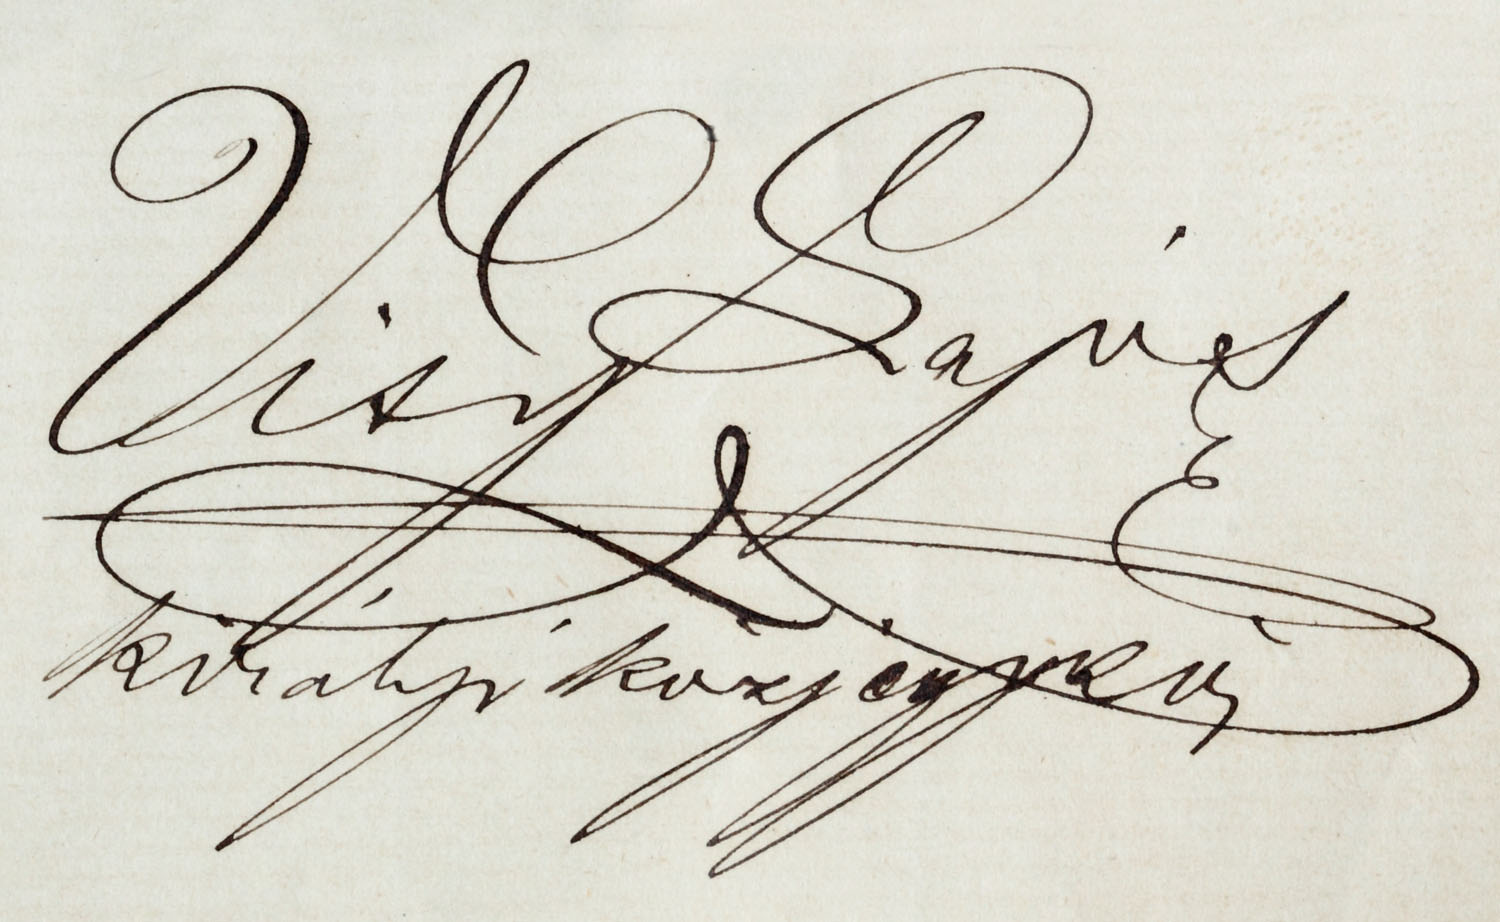 Visy Lajos
királyi közjegyző